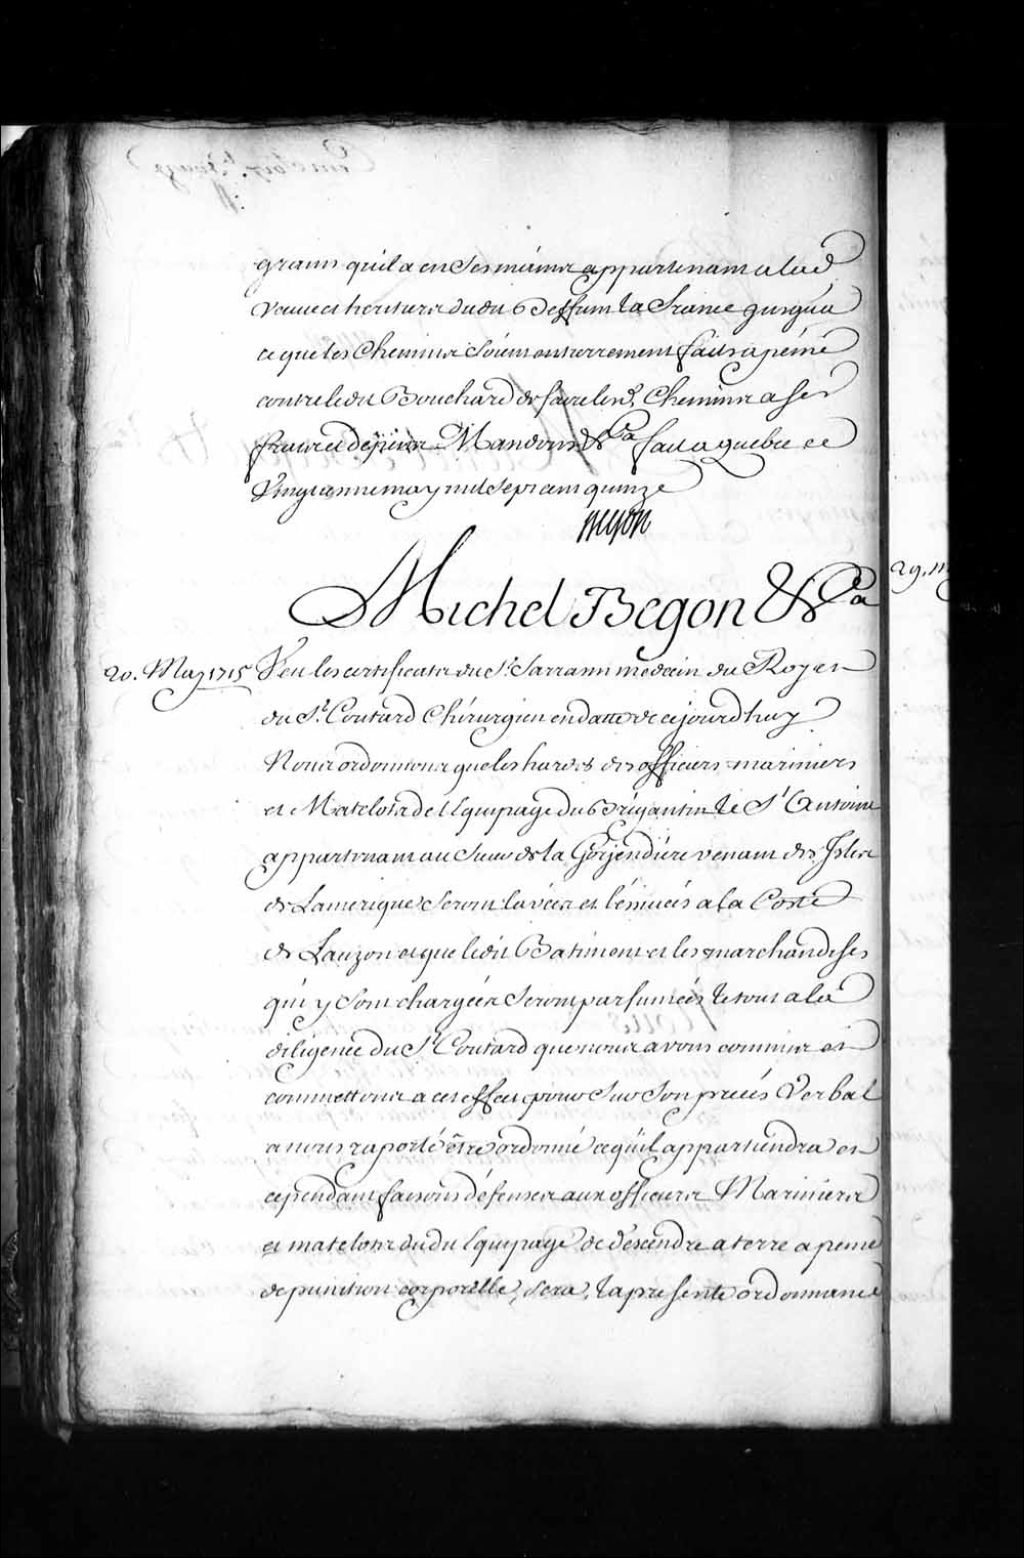 grains quil a en ses mains appartenant a lad
veuve et heritiers dudit deffunt la france jusqua
ce que les Chemins soient entierement faits a peine
contre ledit Bouchard de faire lesd. Chemins a ses
fraix et dépens Mandons &ca fait a quebec ce
Vingt may mil sept cent quinze
Begon
Michel Begon &ca
20. May 1715 Veu les certificats du Sr. Sarrazin medecin du Roy et
du Sr. Coutard Chirurgien en datte de cejourdhuy
Nous ordonnons que les hardes des officiers mariniers
et Matelots de l'Equipage du Brigantin le St Antoine
appartenant au Sieur de la Gorgendiere venant des Isles
de Lamerique seront lavées et l'éssivées a la Coste
de Lauzon et que ledit Batiment et les marchandises
qui y sont chargées seront parfumées le tout a la
diligence du Sr Coutard que nous avons commis et
commettons a cet effet pour sur son procés Verbal
a nous raporté être ordonné ce qu'il appartiendra et
cependant faisons défenses aux officiers Mariniers
et matelots dudit Equipage de déscendre a terre a peine
de punition corporelle, sera, la presente ordonnance
29. m